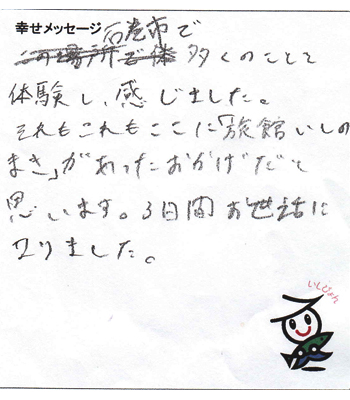 幸せメッセージ 石巻市で
この場所で 多くのことを
体験し、感じました。
それもこれもここに「旅館いしの
まき」があったおかげだと
思います。3日間お世話に
なりました。
いしぴょん